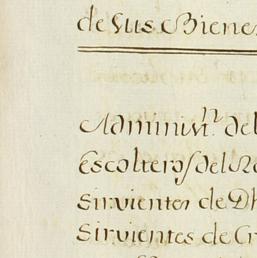 de sus Biene
Adminisn. del
Escolteros del Re
Sirvientes de Dh
Sirvientes de Cr